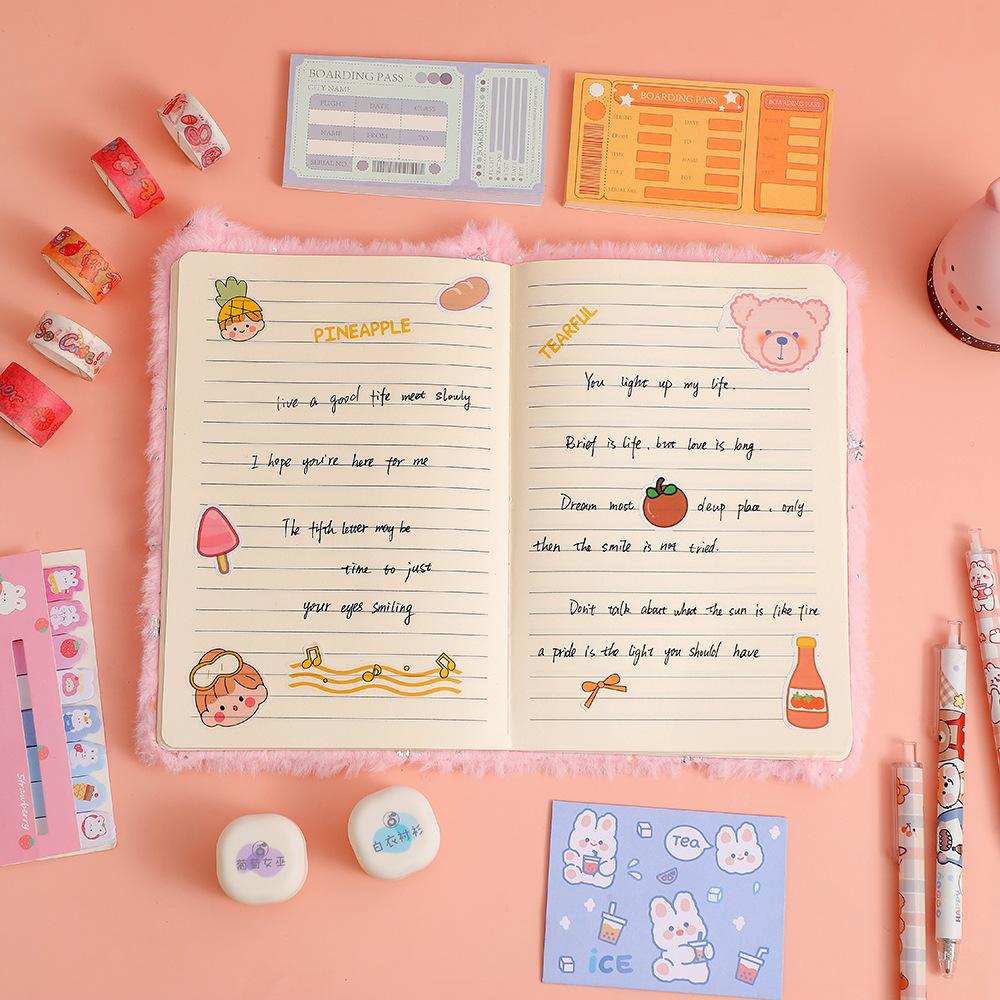 BOARDING PASS
CITY NAME
FLIGHT DATE CLASS
NAME FROM TO
SERIAL NO.
BOARDING PASS
BOARDING PASS
FLIGHT DATE
FROM TO
TIME NAME
SERIAL NO.
BOARDING PASS
So Cute!!
PINEAPPLE
live a good life meet slowly
I hope you're here for me
The fifth letter may be
time to just
your eyes smiling
TEARFUL
You light up my life.
Brief is life, but love is long.
Dream most deup place, only
then the smile is not tried.
Don't talk about what the sun is like fire
a pride is the light you should have
Strawberry
葡萄女巫
白衣衬衫
Tea
iCE
HAPPY